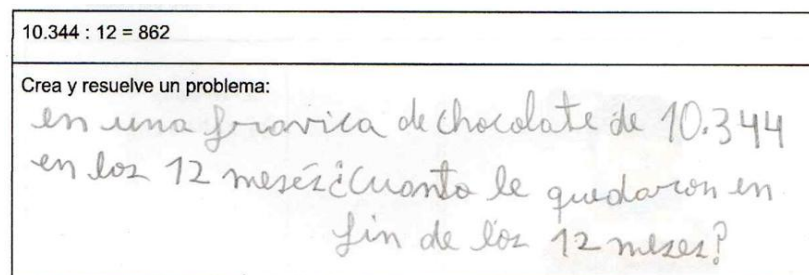 10.344 : 12 = 862
Crea y resuelve un problema:
en una fravica de chocolate de 10.344
en los 12 mesés ¿Cuanto le quedaron en
fin de los 12 meses?